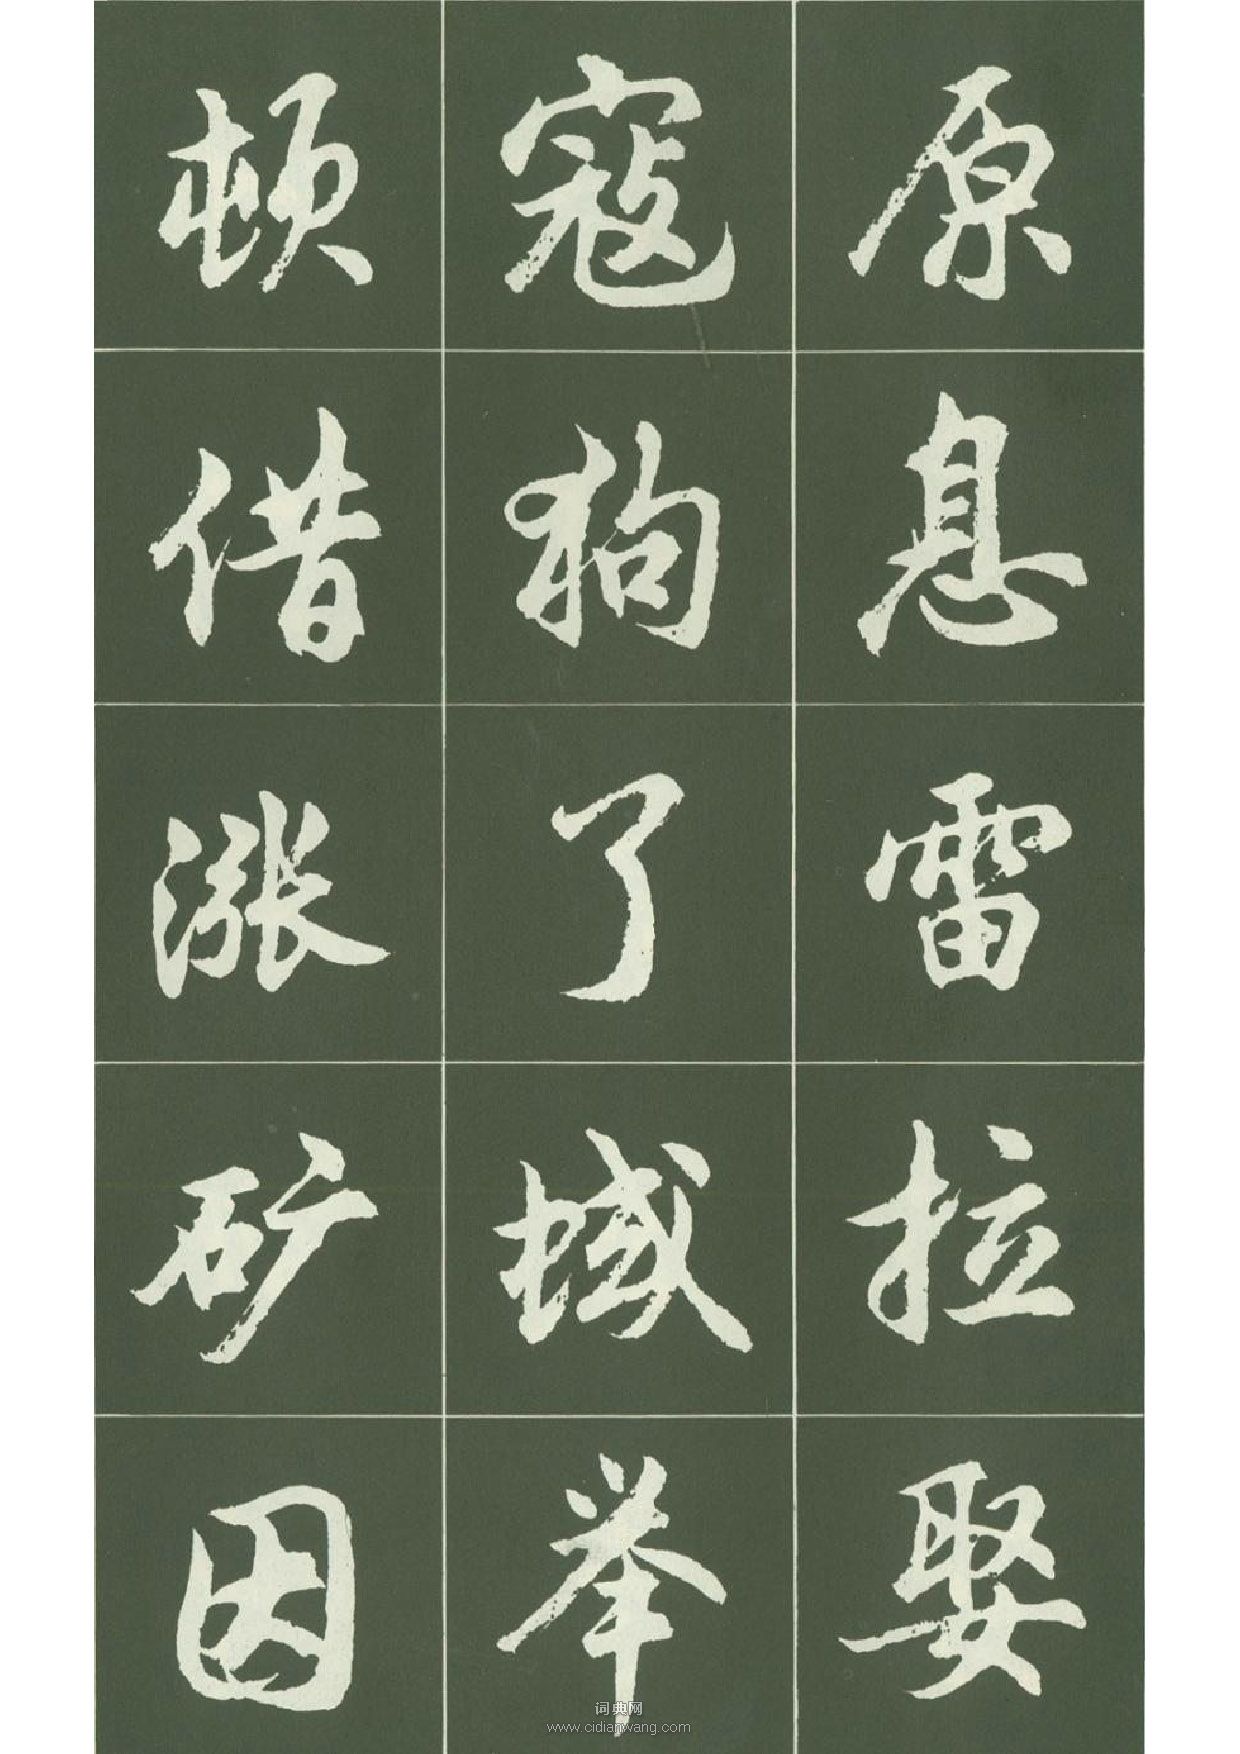 原息雷拉娶
寇狗了域举
顿借涨矿因
词典网
www.cidianwang.com